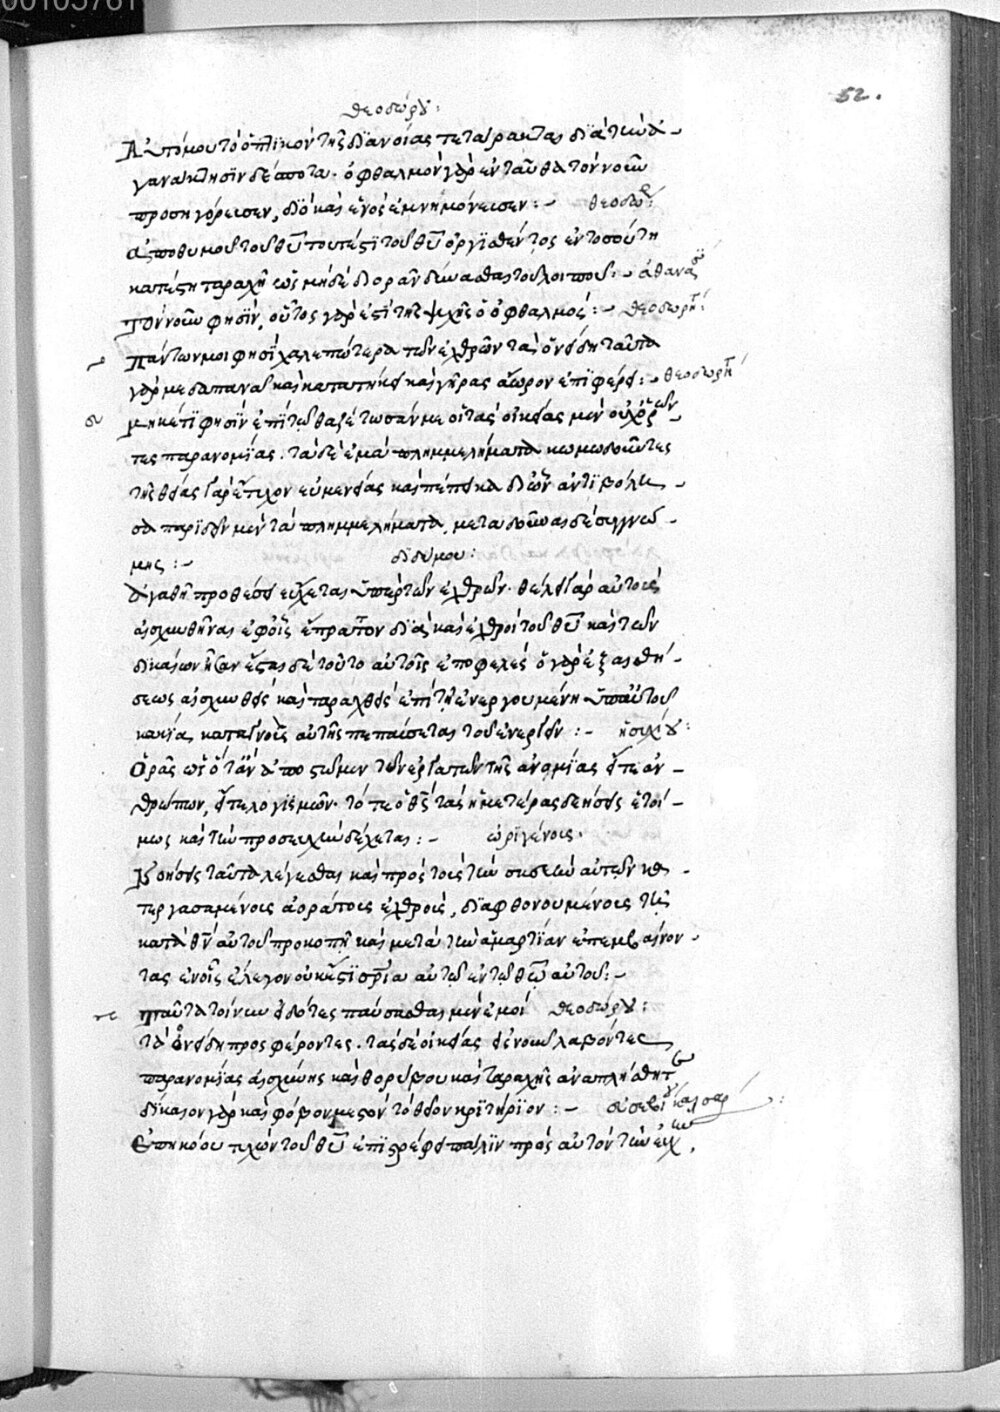 00105761
52.
θεοδώρου:
Αὐτό μου τὸ ὀπτικὸν τῆς διανοίας τετάρακται διὰ τὴν ἀ-
γανάκτησιν δέσποτα· ὀφθαλμὸν γὰρ ἐνταῦθα τὸν νοῦν
προσηγόρευσεν, διὸ καὶ ἑνὸς ἐμνημόνευσεν:- θεοδώρ:
Ἀπὸ θυμοῦ τοῦ θυ τουτέστι τοῦ θυ ὀργισθέντος ἐν τοσούτῳ
κατέστη ταραχῇ ὡς μηδὲ διορᾶν δύνασθαι τοῦ λοιποῦ:- ἀθανασ
Τὸν νοῦν φησὶν, οὗτος γὰρ ἐστὶ τῆς ψυχῆς ὁ ὀφθαλμός:- θεοδωρήτ:
Πάντων μοι φησὶ χαλεπώτερα τῶν ἐχθρῶν τὰ ὀνείδη ταῦτα
γὰρ με δαπανᾶ καὶ κατατήκει καὶ γῆρας ἄωρον ἐπιφέρει:- θεοδωρήτ
μηκέτι φησὶν ἐπιτωθαζέτωσάν με οἱ τὰς οἰκείας μὲν οὐχ ὁρῶν-
τες παρανομίας· τὰ δὲ ἐμὰ πλημμελήματα κωμωδοῦντες
τῆς θείας γὰρ ἔτυχον εὐμενείας καὶ πέπεικα δι ὧν ἀντιβολῶ
παριδεῖν μὲν τὰ πλημμελήματα, μεταδοῦναι δὲ συγγνώ-
μης:- διδύμου:
Ἀγαθῇ προθέσει εὔχεται ὑπὲρ τῶν ἐχθρῶν· θέλει γὰρ αὐτοὺς
αἰσχυνθῆναι ἐφ οἷς ἔπραττον διὰ καὶ ἐχθροὶ τοῦ θυ καὶ τῶν
δικαίων ἦσαν ἔσται δὲ τοῦτο αὐτοῖς ἐπωφελές ὁ γὰρ ἐξ αἰσθή-
σεως αἰσχυνθεὶς καὶ ταραχθεὶς ἐπὶ τῇ ἐνεργουμένῃ ὑπ αὐτοῦ
κακία, καταγνοὺς αὐτῆς πεπαύσεται τοῦ ἐνεργεῖν:- ἡσυχίου:
Ὁρᾶς ὡς ὅταν ἀποστῶμεν τῶν ἐργατῶν τῆς ἀνομίας εἴτε ἀν-
θρώπων, εἴτε λογισμῶν· τότε ὁ θς τὰς ἡμετέρας δεήσεις ἑτοί-
μως καὶ τὴν προσευχὴν δέχεται:- ὠριγένους·
ταῦτα λέγεσθαι καὶ πρὸς τοὺς τὴν αὐτῶν κα-
τεργασαμένοις ἀοράτοις ἐχθροῖς, διαφθονουμένοις τῆς
κατὰ θν αὐτοῦ προκοπῆς καὶ μετὰ τὴν ἁμαρτίαν ἐπεμβαίνον-
τας ἐν οἷς ἔλεγον οὐκ ἔστι σρία αὐτῷ ἐν τῷ θω αὐτοῦ:-
Ταῦτα τοίνυν εἰδότες παύσασθαι μὲν ἐμοὶ θεοδώρου:
τὰ ὀνείδη προσφέροντες· τὰς δὲ οἰκείας εἰς νοῦν λαβόντες
παρανομίας αἰσχύνης καὶ θορύβου καὶ ταραχῆς ἀναπλήσθητε
δίκαιον γὰρ καὶ φόβον μεστὸν τὸ θεῖον κριτήριον:- εὐσεβίου καισαρ:
Ἐπηκόου τυχὼν τοῦ θυ ἐπιστρέφει πάλιν πρὸς αὐτὸν τὴν εὐχὴν,